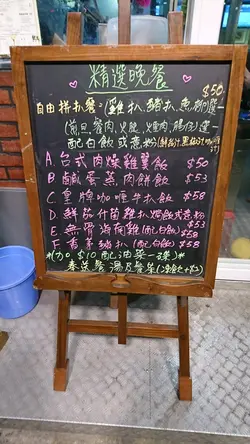 精選晚餐
$50
自由拼扒餐:(雞扒、豬扒、魚柳)選
(煎旦、餐肉、火腿、煙肉、腸仔)選一
配白飯或薏粉
A 台式肉燥雞翼飯 $50
B 鹹蛋蒸肉餅飯 $53
C 皇牌咖喱牛扒飯 $58
D 鮮茄什菌雞扒焗飯或薏粉
$53
E 無骨海南雞(配白飯) $58
F 香茅豬扒(配白飯) $58
*(加$10配油菜一碟)*